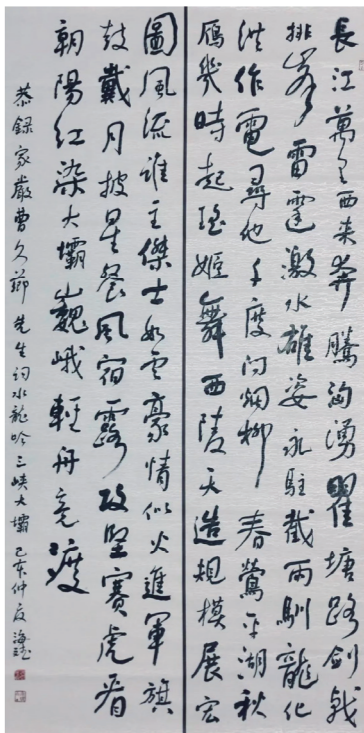 長江萬里西来奔騰洶湧瞿塘路劍戟
排峯雷霆激水雄姿永駐截雨馴龍化
洪作電尋他千度问烟柳春鶯平湖秋
雁幾時起瑤姬舞西陵天造規模展宏
圖風流谁主傑士如雲豪情似火進軍旗
鼓戴月披星餐風宿露攻堅賽虎看
朝陽红染大壩巍峨輕舟竞渡
恭録家嚴曹久 先生词水龍吟三峡大壩己亥仲夏海